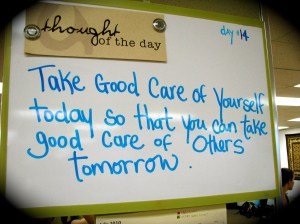 thought
of the day
day #14
Take Good Care of Yourself
today so that you can take
good care of Others
tomorrow.